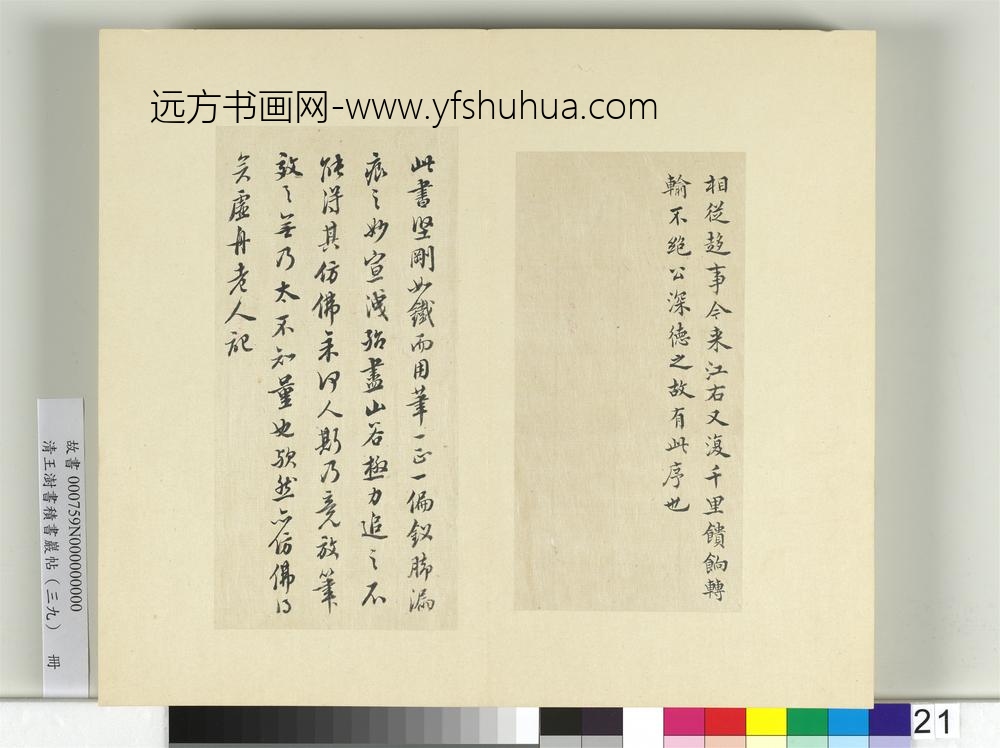 远方书画网-www.yfshuhua.com
相從趍事今来江右又復千里饋餉轉
輸不絶公深德之故有此序也
此書堅剛如鐵而用筆一正一偏釵腳漏
痕之妙宣洩殆盡山谷極力追之不
能得其仿佛余何人斯乃竟放筆
效之無乃太不知量也歟然亦仿佛得
矣虛舟老人記
故書 000759N000000000
清王澍書積書巖帖(三九) 冊
21